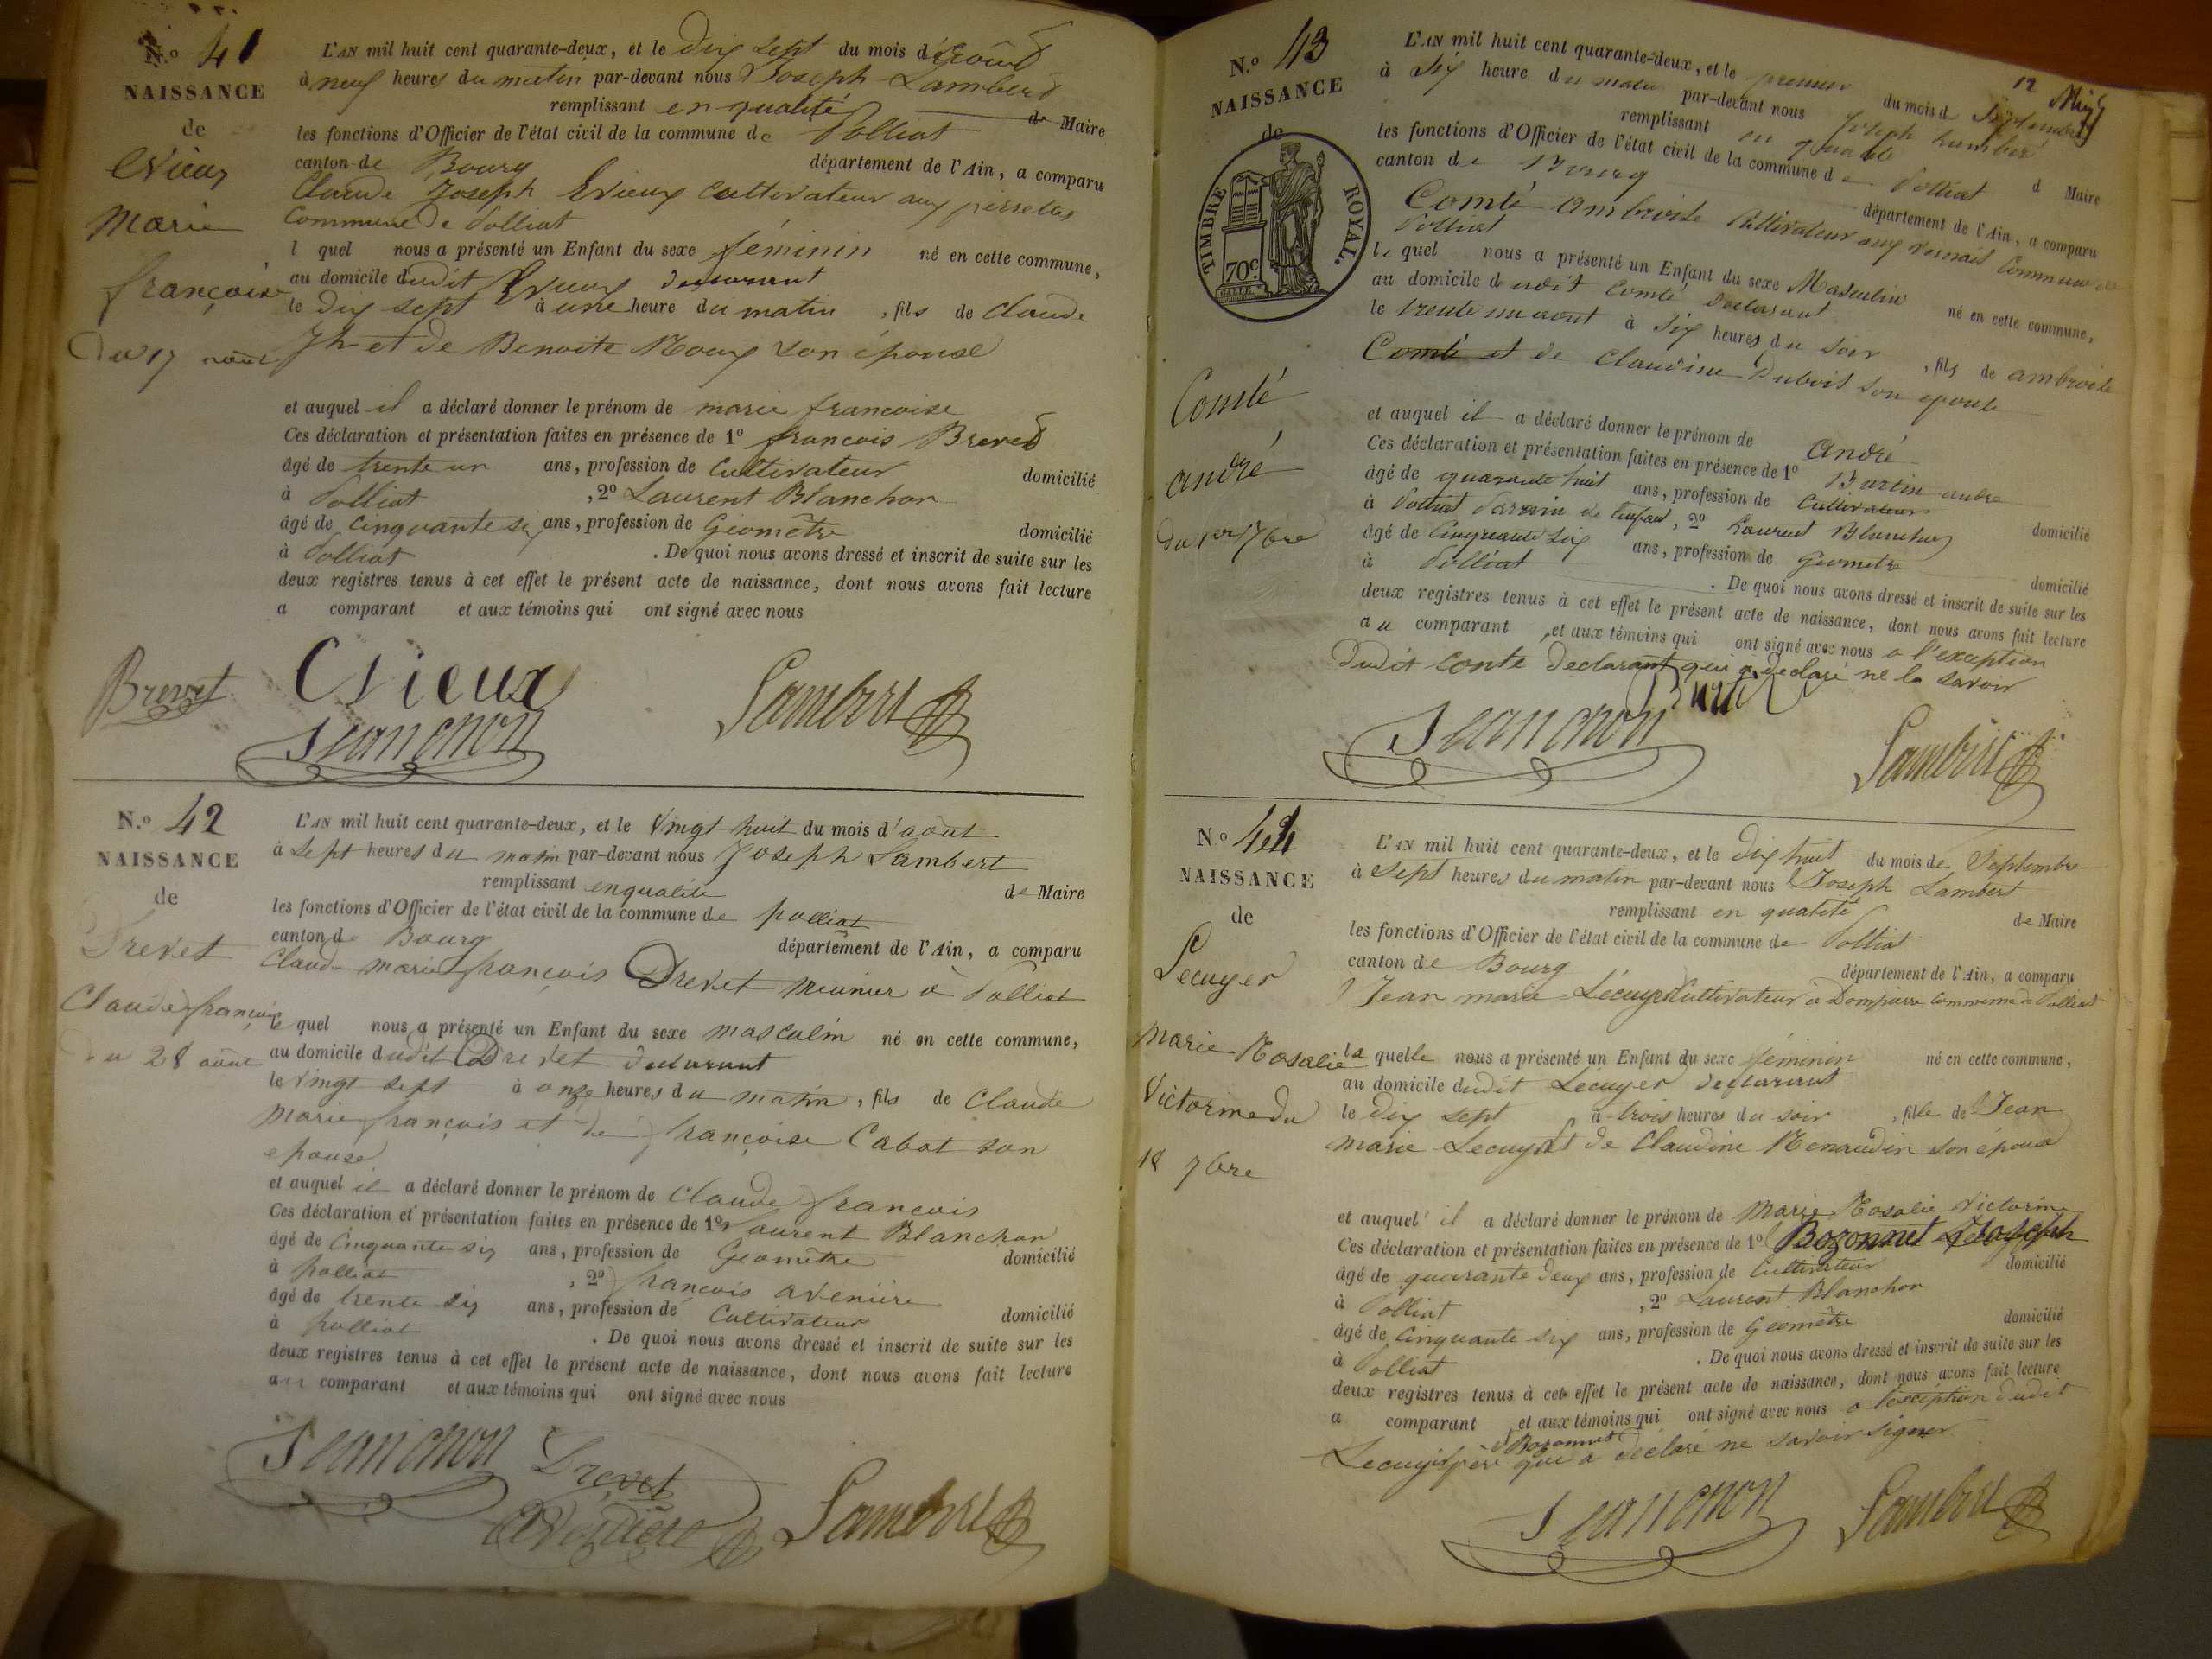 N.º 41
NAISSANCE
de
Evieux
Marie
françoise
Du 17 août
L'AN mil huit cent quarante-deux, et le Dix sept du mois d'août
à neuf heures du matin par-devant nous Joseph Lambert
remplissant en qualité de Maire
les fonctions d'Officier de l'état civil de la commune de Polliat
canton de Bourg département de l'Ain, a comparu
Claude Joseph Evieux Cultivateur aux
Commune de Polliat
l quel nous a présenté un Enfant du sexe féminin né en cette commune,
au domicile dudit Evieux declarant
le dix sept à une heure du matin, fils de Claude
Jh et de Benoite Roux son épouse
et auquel il a déclaré donner le prénom de marie francoise
Ces déclaration et présentation faites en présence de 1º francois Brevet
âgé de trente un ans, profession de Cultivateur domicilié
à Polliat, 2º Laurent Blanchon
âgé de cinquante six ans, profession de Géomètre domicilié
à Polliat. De quoi nous avons dressé et inscrit de suite sur les
deux registres tenus à cet effet le présent acte de naissance, dont nous avons fait lecture
a comparant et aux témoins qui ont signé avec nous
Brevet Evieux Lambert
Blanchon
N.º 42
NAISSANCE
de
Drevet
Claude françois
du 28 août
L'AN mil huit cent quarante-deux, et le vingt huit du mois d'août
à sept heures du matin par-devant nous Joseph Lambert
remplissant en qualité de Maire
les fonctions d'Officier de l'état civil de la commune de polliat
canton de Bourg département de l'Ain, a comparu
Claude marie françois Drevet meunier à Polliat
le quel nous a présenté un Enfant du sexe masculin né en cette commune,
au domicile dudit Drevet declarant
le vingt sept à onze heures du matin, fils de Claude
Marie françois et de françoise Cabot son
epouse
et auquel il a déclaré donner le prénom de Claude francois
Ces déclaration et présentation faites en présence de 1º Laurent Blanchon
âgé de cinquante six ans, profession de Géomètre domicilié
à polliat, 2º francois avenière
âgé de trente six ans, profession de Cultivateur domicilié
à polliat. De quoi nous avons dressé et inscrit de suite sur les
deux registres tenus à cet effet le présent acte de naissance, dont nous avons fait lecture
au comparant et aux témoins qui ont signé avec nous
Blanchon Drevet
Lambert
12
N.º 43
NAISSANCE
de
TIMBRE ROYAL.
70c.
Comté
andré
Du 1er 7bre
L'AN mil huit cent quarante-deux, et le premier du mois de Septembre
à six heure du matin par-devant nous Joseph Lambert
remplissant en qualité d Maire
les fonctions d'Officier de l'état civil de la commune de Polliat
canton de Bourg département de l'Ain, a comparu
Comté ambroise Cultivateur aux Commune de
Polliat
le quel nous a présenté un Enfant du sexe Masculin né en cette commune,
au domicile dudit Comté declarant
le trente un aout à six heures du soir, fils de ambroise
Comté et de Claudine Dubois son epouse
et auquel il a déclaré donner le prénom de andré
Ces déclaration et présentation faites en présence de 1º Burtin andre
âgé de quarante huit ans, profession de Cultivateur domicilié
à Polliat Parrain de l'enfant, 2º Laurent Blanchon
âgé de Cinquante six ans, profession de Géometre domicilié
à Polliat. De quoi nous avons dressé et inscrit de suite sur les
deux registres tenus à cet effet le présent acte de naissance, dont nous avons fait lecture
au comparant, et aux témoins qui ont signé avec nous a l'exception
dudit conte declarant qui a declaré ne le savoir
Burtin
Blanchon Lambert
Nº 44
NAISSANCE
de
Lecuyer
Marie Rosalie
Victorine du
18 7bre
L'AN mil huit cent quarante-deux, et le dix huit du mois de Septembre
à sept heures du matin par-devant nous Joseph Lambert
remplissant en qualité de Maire
les fonctions d'Officier de l'état civil de la commune de Polliat
canton de Bourg département de l'Ain, a comparu
Jean marie Lécuyer Cultivateur à Dompierre Commune de Polliat
la quelle nous a présenté un Enfant du sexe féminin né en cette commune,
au domicile dudit Lecuyer declarant
le dix sept à trois heures du soir, fille de Jean
marie Lecuyer et de Claudine Renaudin son épouse
et auquel il a déclaré donner le prénom de Marie Rosalie Victorine
Ces déclaration et présentation faites en présence de 1º Bozonnet Joseph
âgé de quarante deux ans, profession de Cultivateur domicilié
à Polliat, 2º Laurent Blanchon
âgé de Cinquante six ans, profession de Géomètre domicilié
à Polliat. De quoi nous avons dressé et inscrit de suite sur les
deux registres tenus à cet effet le présent acte de naissance, dont nous avons fait lecture
a comparant, et aux témoins qui ont signé avec nous a l'exception dudit
Bozonnet
Lecuyer père qui a déclaré ne savoir signer
Blanchon Lambert